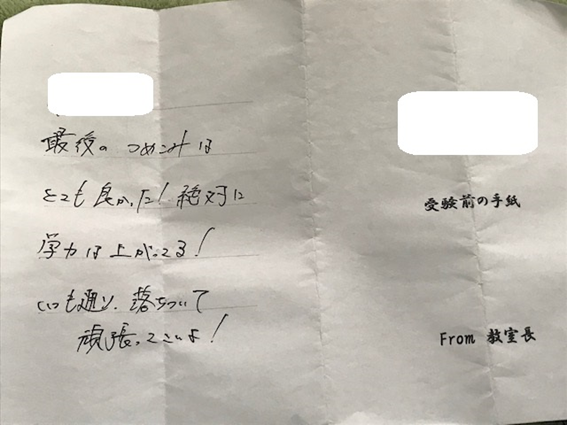 最後の つめこみは
とても良かった！絶対に
学力は上がってる！
いつも通り、落ちついて
頑張ってこいよ！
受験前の手紙
From 教室長